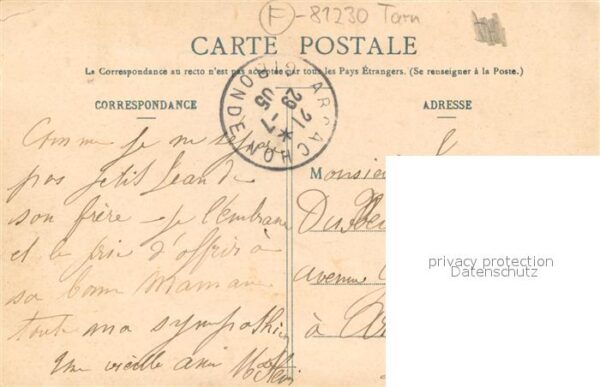 F -81230 Tarn
CARTE POSTALE
La Correspondance au recto n'est pas acceptée par tous les Pays Étrangers. (Se renseigner à la Poste.)
CORRESPONDANCE
ADRESSE
ARCACHON
GIRONDE
21
29 -7
05
Comme je ne
pas petit Jean de
son frère - je l'embrasse
et le prie d'offrir à
sa bonne Maman
toute ma sympathie
Une vieille amie
Monsieur
avenue
à
privacy protection
Datenschutz